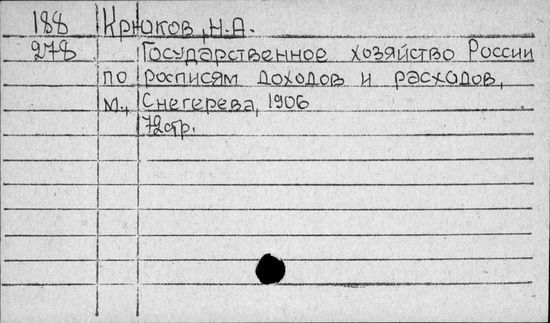 188 Крюков, Н.А.
278 Государственное хозяйство России
по росписям доходов и расходов,
М., Снегерева, 1906
72стр.